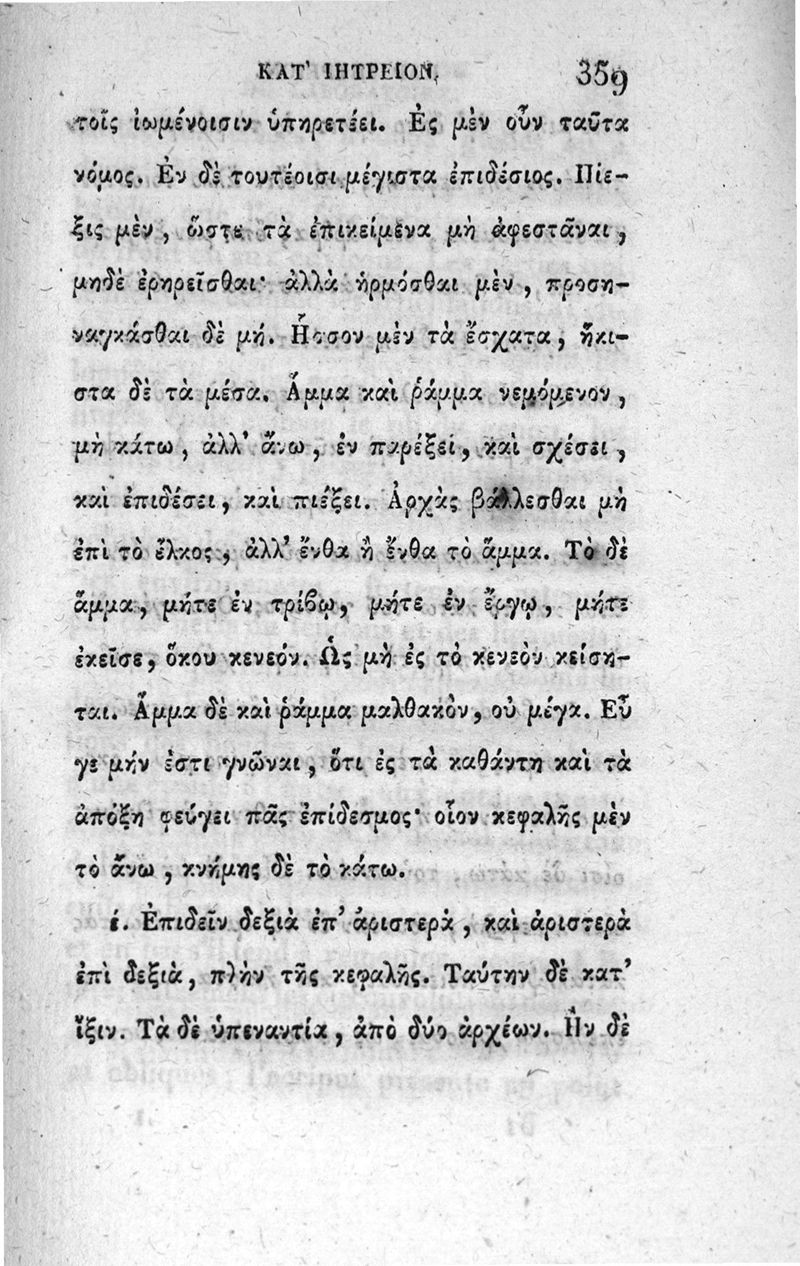 ΚΑΤ' ΙΗΤΡΕΙΟΝ, 359
τοῖς ἰωμένοισιν ὑπηρετέει. Ἐς μὲν οὖν ταῦτα
νόμος. Ἐν δὲ τουτέοισι μέγιστα ἐπιδέσιος. Πίε-
ξις μὲν, ὥστε τὰ ἐπικείμενα μὴ ἀφεστᾶναι,
μηδὲ ἐρηρεῖσθαι· ἀλλὰ ἡρμόσθαι μὲν, προση-
ναγκάσθαι δὲ μή. Ἧσσον μὲν τὰ ἔσχατα, ἥκι-
στα δὲ τὰ μέσα. Ἅμμα καὶ ῥάμμα νεμόμενον,
μὴ κάτω, ἀλλ' ἄνω, ἐν παρέξει, καὶ σχέσει,
καὶ ἐπιδέσει, καὶ πιέξει. Ἀρχὰς βάλλεσθαι μὴ
ἐπὶ τὸ ἕλκος, ἀλλ' ἔνθα ἢ ἔνθα τὸ ἅμμα. Τὸ δὲ
ἅμμα, μήτε ἐν τρίβῳ, μήτε ἐν ἔργῳ, μήτε
ἐκεῖσε, ὅκου κενεόν. Ὡς μὴ ἐς τὸ κενεὸν κείση-
ται. Ἅμμα δὲ καὶ ῥάμμα μαλθακὸν, οὐ μέγα. Εὖ
γε μήν ἐστι γνῶναι, ὅτι ἐς τὰ καθάντη καὶ τὰ
ἀπόξη φεύγει πᾶς ἐπίδεσμος· οἷον κεφαλῆς μὲν
τὸ ἄνω, κνήμης δὲ τὸ κάτω.
ί. Ἐπιδεῖν δεξιὰ ἐπ' ἀριστερὰ, καὶ ἀριστερὰ
ἐπὶ δεξιὰ, πλὴν τῆς κεφαλῆς. Ταύτην δὲ κατ'
ἴξιν. Τὰ δὲ ὑπεναντία, ἀπὸ δύο ἀρχέων. Ἢν δὲ